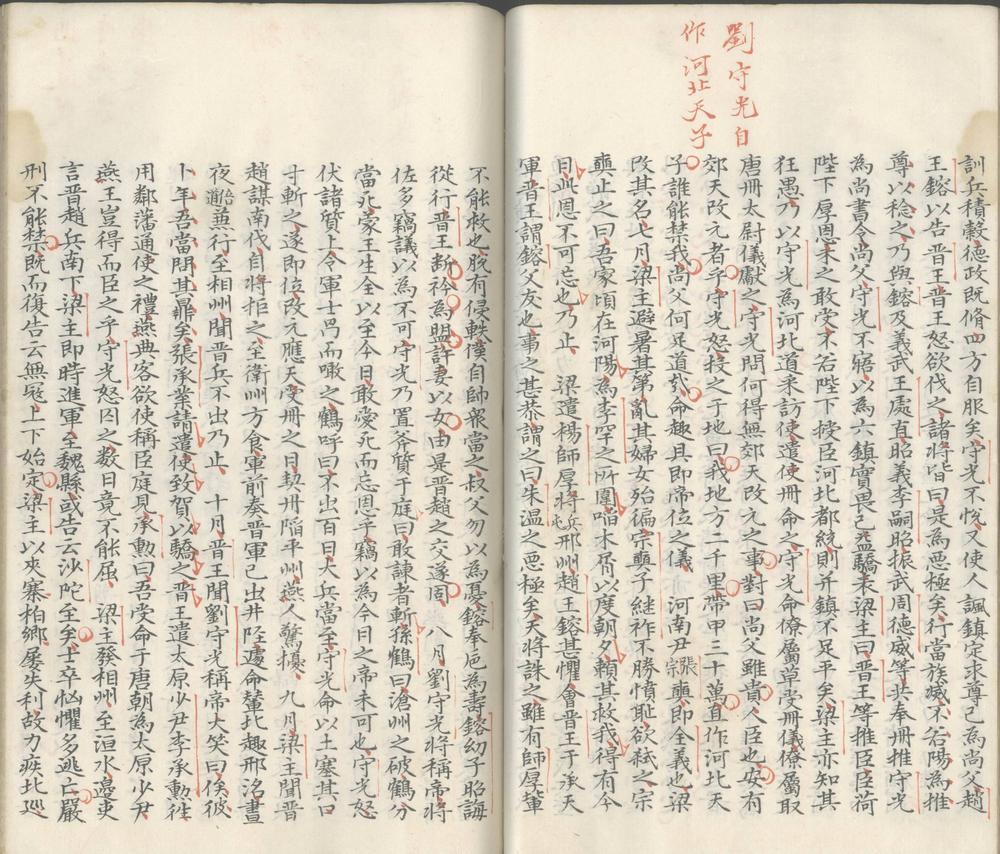 劉守光自
作河北天子
訓兵積穀德政既脩四方自服矣守光不悅又使人諷鎮定求尊己為尚父趙
王鎔以告晉王晉王怒欲伐之諸將皆曰是為惡極矣行當族滅不若陽為推
尊以稔之乃與鎔及義武王處直昭義李嗣昭振武周德威等共奉冊推守光
為尚書令尚父守光不寤以為六鎮實畏己益驕表梁主曰晉王等推臣臣荷
陛下厚恩未之敢受不若陛下授臣河北都統則并鎮不足平矣梁主亦知其
狂愚乃以守光為河北道采訪使遣使冊命之守光命僚屬草受冊儀僚屬取
唐冊太尉儀獻之守光問何得無郊天改元之事對曰尚父雖貴人臣也安有
郊天改元者乎守光怒投之于地曰我地方二千里帶甲三十萬直作河北天
子誰能禁我尚父何足道哉命趣具即帝位之儀 河南尹張宗奭即全義也梁
改其名七月梁主避暑其第亂其婦女殆徧宗奭子繼祚不勝憤恥欲弒之宗
奭止之曰吾家頃在河陽為李罕之所圍啗木屑以度朝夕賴其救我得有今
日此恩不可忘也乃止 梁遣楊師厚將兵屯邢州趙王鎔甚懼會晉王于承天
軍晉王謂鎔父友也事之甚恭謂之曰朱溫之惡極矣天將誅之雖有師厚輩
不能救也脫有侵軼僕自師衆當之叔父勿以為憂鎔奉巵為壽鎔幼子昭誨
從行晉王斷衿為盟許妻以女由是晉趙之交遂固 八月劉守光將稱帝將
佐多竊議以為不可守光乃置斧質于庭曰敢諫者斬孫鶴曰滄州之破鶴分
當死蒙王生全以至今日敢愛死而忘恩乎竊以為今日之帝未可也守光怒
伏諸質上令軍士冎而噉之鶴呼曰不出百日大兵當至守光命以土塞其口
寸斬之遂即位改元應天受冊之日契丹陷平州燕人驚擾 九月梁主聞晉
趙謀南伐自將拒之至衛州方食軍前奏晉軍已出井陘遽命輦北趣邢洺晝
夜倍道兼行至相州聞晉兵不出乃止 十月晉王聞劉守光稱帝大笑曰俟彼
卜年吾當問其鼎矣張承業請遣使致賀以驕之晉王遣太原少尹李承勳往
用鄰藩通使之禮燕典客欲使稱臣庭見承勳曰吾受命于唐朝為太原少尹
燕王豈得而臣之乎守光怒囚之數日竟不能屈 梁主發相州至洹水邊吏
言晉趙兵南下梁主即時進軍至魏縣或告云沙陀至矣士卒恟懼多逃亡嚴
刑不能禁既而復告云無寇上下始定梁主以夾寨柏鄉屢失利故力疾北巡